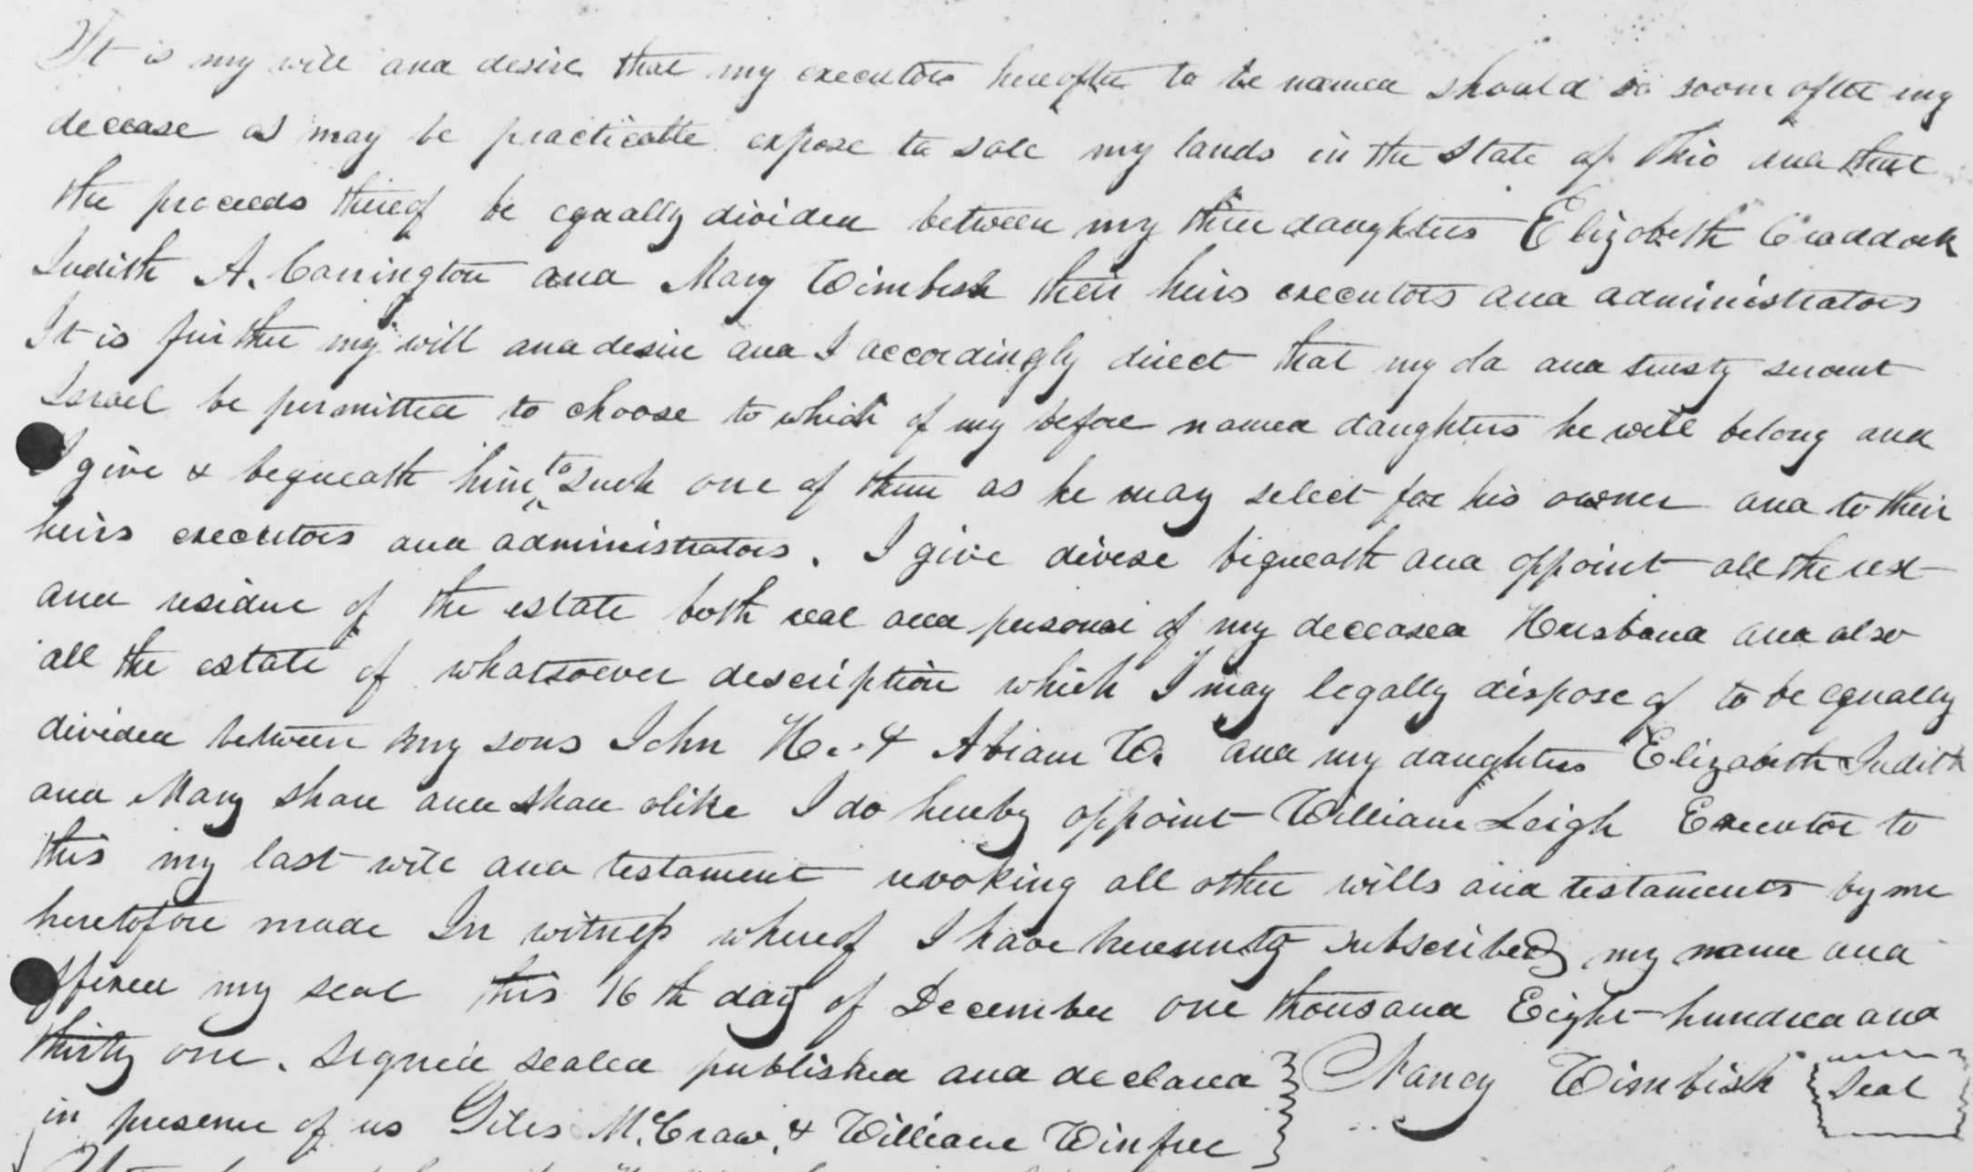 It is my will and desire that my executors hereafter to be named should so soon after my
decease as may be practicable expose to sale my lands in the State of Ohio and that
the proceeds thereof be equally divided between my three daughters Elizabeth Craddock
Judith A. Carrington and Mary Wimbish their heirs executors and administrators
It is further my will and desire and I accordingly direct that my old and trusty servant
Israel be permitted to choose to which of my before named daughters he will belong and
I give & bequeath him to such one of them as he may select for his owner and to their
heirs executors and administrators. I give divese bequeath and appoint all the rest
and residue of the estate both real and personal of my deceased Husband and also
all the estate of whatsoever description which I may legally dispose of to be equally
divided between my sons John H. & Abram W. and my daughters Elizabeth Judith
and Mary share and share alike I do hereby appoint William Leigh Executor to
this my last will and testament revoking all other wills and testaments by me
heretofore made In witness whereof I have hereunto subscribed my name and
affixed my seal this 16th day of December one thousand Eight hundred and
thirty one. Signed sealed published and declared } Nancy Wimbish Seal
in presence of us Giles McCraw, & William Winfree }